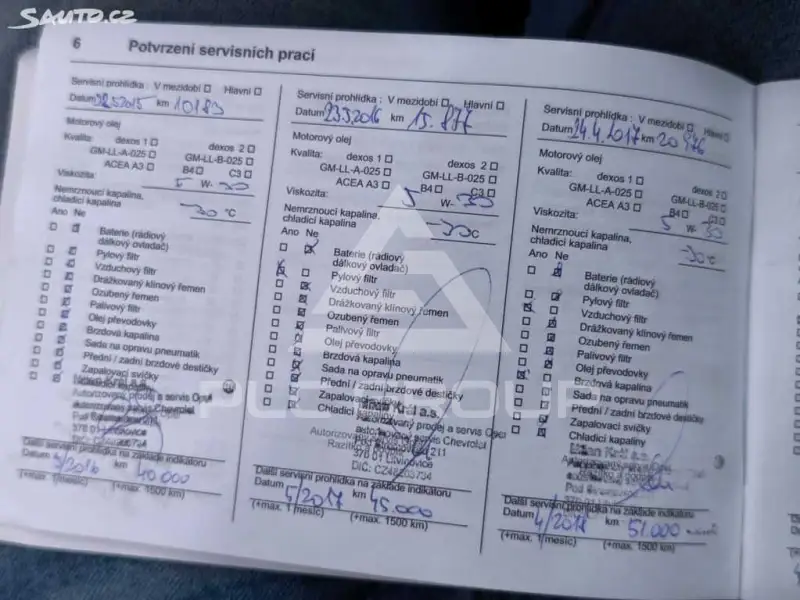 SAUTO.CZ
6 Potvrzení servisních prací
Servisní prohlídka : V mezidobí Hlavní
Datum 2015 km 10183
Motorový olej
Kvalita: dexos 1 dexos 2
GM-LL-A-025 GM-LL-B-025
ACEA A3 B4 C3
Viskozita: 5 W- 30
Nemrznoucí kapalina,
chladicí kapalina -30 °C
Ano Ne
Baterie (rádiový
dálkový ovladač)
Pylový filtr
Vzduchový filtr
Drážkovaný klínový řemen
Ozubený řemen
Palivový filtr
Olej převodovky
Brzdová kapalina
Sada na opravu pneumatik
Přední / zadní brzdové destičky
Zapalovací svíčky
Autorizovaný prodej a servis Opel
Chevrolet
Další servisní prohlídka na základě indikátoru
Datum 5/2016 km 40 000
(+max. 1 měsíc) (+max. 1500 km)
Servisní prohlídka : V mezidobí Hlavní
Datum 23.5.2016 km 15.877
Motorový olej
Kvalita: dexos 1 dexos 2
GM-LL-A-025 GM-LL-B-025
ACEA A3 B4 C3
Viskozita: 5 W- 30
Nemrznoucí kapalina,
chladicí kapalina -30 C
Ano Ne
Baterie (rádiový
dálkový ovladač)
Pylový filtr
Vzduchový filtr
Drážkovaný klínový řemen
Ozubený řemen
Palivový filtr
Olej převodovky
Brzdová kapalina
Sada na opravu pneumatik
Přední / zadní brzdové destičky
Zapalovací svíčky
Chladicí kapaliny
Milan Král a.s.
Autorizovaný prodej a servis Opel
autorizovaný servis Chevrolet
211
370 01 Litvínovice
DIČ: CZ
Další servisní prohlídka na základě indikátoru
Datum 5/2017 km 45.000
(+max. 1 měsíc) (+max. 1500 km)
Servisní prohlídka : V mezidobí Hlavní
Datum 24.4.2017 km 20 976
Motorový olej
Kvalita: dexos 1 dexos 2
GM-LL-A-025 GM-LL-B-025
ACEA A3 B4 C3
Viskozita: 5 W- 30
Nemrznoucí kapalina,
chladicí kapalina -30 °C
Ano Ne
Baterie (rádiový
dálkový ovladač)
Pylový filtr
Vzduchový filtr
Drážkovaný klínový řemen
Ozubený řemen
Palivový filtr
Olej převodovky
Brzdová kapalina
Sada na opravu pneumatik
Přední / zadní brzdové destičky
Zapalovací svíčky
Chladicí kapaliny
Milan Král a.s.
Další servisní prohlídka na základě indikátoru
Datum 4/2018 km 51.000
(+max. 1 měsíc) (+max. 1500 km)
GROUP